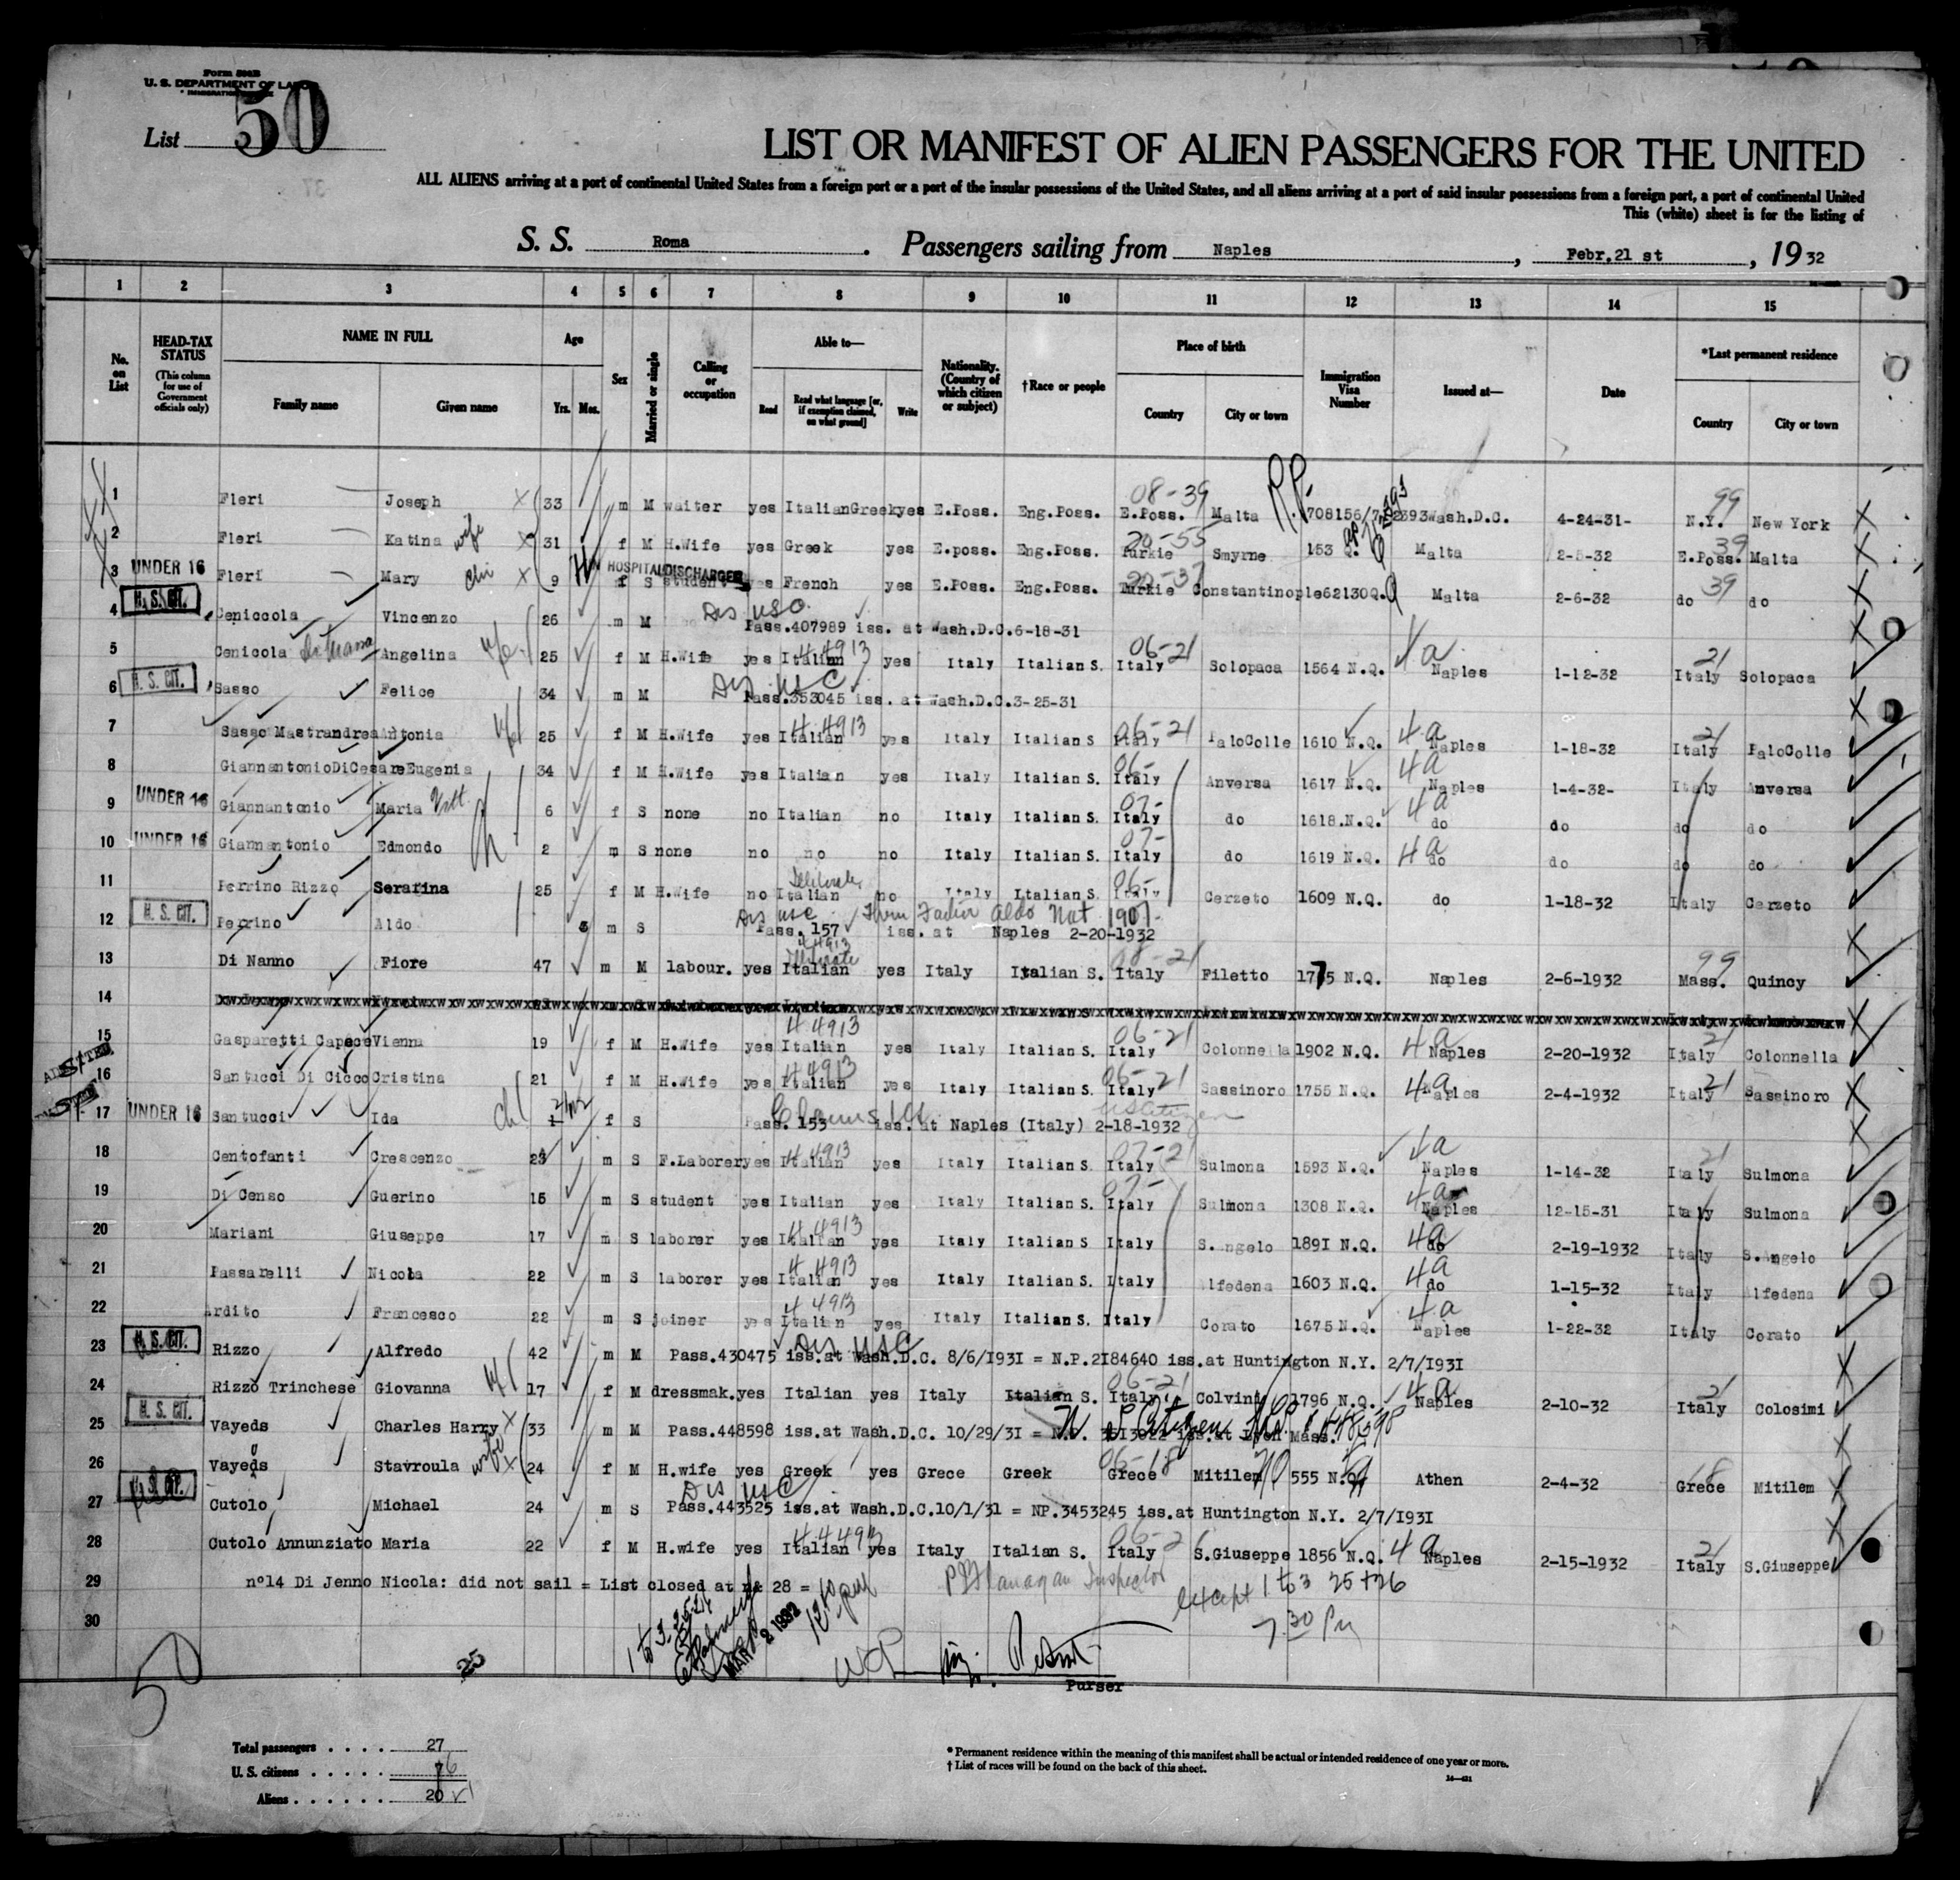 Form 500B
U. S. DEPARTMENT OF LABOR
List 50
LIST OR MANIFEST OF ALIEN PASSENGERS FOR THE UNITED
ALL ALIENS arriving at a port of continental United States from a foreign port or a port of the insular possessions of the United States, and all aliens arriving at a port of said insular possessions from a foreign port, a port of continental United
This (white) sheet is for the listing of
S. S. Roma . Passengers sailing from Naples , Febr.21 st , 1932
1 2 3 4 5 6 7 8 9 10 11 12 13 14 15
No. on List HEAD-TAX STATUS (This column for use of Government officials only) NAME IN FULL Family name Given name Age Yrs. Mos. Sex Married or single Calling or occupation Able to— Read Read what language [or, if exemption claimed, on what ground] Write Nationality. (Country of which citizen or subject) †Race or people Place of birth Country City or town Immigration Visa Number Issued at— Date *Last permanent residence Country City or town
08-39 99
1 Fleri Joseph X 33 m M waiter yes ItalianGreekyes E.Poss. Eng.Poss. E.Poss. Malta 708156/ Wash.D.C. 4-24-31- N.Y. New York X
20-55 39
2 Fleri Katina wife X 31 f M H.Wife yes Greek yes E.poss. Eng.Poss. Turkie Smyrne 153 Q. Malta 2-5-32 E.Poss. Malta X
HOSPITAL DISCHARGED 20-37 39
3 UNDER 16 Fleri Mary Chi X 9 f S student yes French yes E.Poss. Eng.Poss. Turkie Constantinople62130Q. Malta 2-6-32 do do
Dis USC
4 U. S. CIT. Ceniccola Vincenzo 26 m M Pass.407989 iss. at Wash.D.C.6-18-31 X
44913 06-21 4a 21
5 Cenicola Angelina 25 f M H.Wife yes Italian yes Italy Italian S. Italy Solopaca 1564 N.Q. Naples 1-12-32 Italy Solopaca
Dis USC
6 U. S. CIT. Sasso Felice 34 m M Pass.353045 iss. at Wash.D.C.3-25-31 X
44913 06-21 4a 21
7 Sasso MastrandreaAntonia 25 f M H.Wife yes Italian yes Italy Italian S Italy PaloColle 1610 N.Q. Naples 1-18-32 Italy PaloColle
06- 4a
8 GiannantonioDiCesareEugenia 34 f M H.Wife yes Italian yes Italy Italian S. Italy Anversa 1617 N.Q. Naples 1-4-32- Italy Anversa
07- 4a
9 UNDER 16 Giannantonio Maria 6 f S none no Italian no Italy Italian S. Italy do 1618.N.Q. do do do do
07- 4a
10 UNDER 16 Giannantonio Edmondo 2 m S none no no no Italy Italian S. Italy do 1619 N.Q. do do do do
06-
11 Perrino Rizzo Serafina 25 f M H.Wife no Italian no Italy Italian S. Italy Cerzeto 1609 N.Q. do 1-18-32 Italy Cerzeto
Dis USC Aldo Nat
12 U. S. CIT. Perrino Aldo m S Pass. 157 iss. at Naples 2-20-1932 X
44913 08-21 99
13 Di Nanno Fiore 47 m M labour. yes Italian yes Italy Italian S. Italy Filetto 1775 N.Q. Naples 2-6-1932 Mass. Quincy
14 X
44913 06-21 4a 21
15 Gasparetti CapeceVienna 19 f M H.Wife yes Italian yes Italy Italian S. Italy Colonnella 1902 N.Q. Naples 2-20-1932 Italy Colonnella
44913 06-21 4a 21
16 Santucci Di CiccoCristina 21 f M H.Wife yes Italian yes Italy Italian S. Italy Sassinoro 1755 N.Q. Naples 2-4-1932 Italy Sassinoro X
17 UNDER 16 Santucci Ida ch f S Pass. 153 iss. at Naples (Italy) 2-18-1932 X
44913 07-21 4a 21
18 Centofanti Crescenzo m S F.Laborer yes Italian yes Italy Italian S. Italy Sulmona 1593 N.Q. Naples 1-14-32 Italy Sulmona
07- 4a
19 Di Censo Guerino 15 m S student yes Italian yes Italy Italian S. Italy Sulmona 1308 N.Q. Naples 12-15-31 Italy Sulmona
44913 4a
20 Mariani Giuseppe 17 m S laborer yes Italian yes Italy Italian S Italy S.Angelo 1891 N.Q. do 2-19-1932 Italy S.Angelo
44913 4a
21 Passarelli Nicola 22 m S laborer yes Italian yes Italy Italian S. Italy Alfedena 1603 N.Q. do 1-15-32 Italy Alfedena
44913 4a
22 Ardito Francesco 22 m S joiner yes Italian yes Italy Italian S. Italy Corato 1675 N.Q. Naples 1-22-32 Italy Corato
Dis USC
23 U. S. CIT. Rizzo Alfredo 42 m M Pass.430475 iss.at Wash.D.C. 8/6/1931 = N.P.2184640 iss.at Huntington N.Y. 2/7/1931 X
06-21 4a 21
24 Rizzo Trinchese Giovanna 17 f M dressmak.yes Italian yes Italy Italian S. Italy Colvino 1796 N.Q. Naples 2-10-32 Italy Colosimi
25 U. S. CIT. Vayeds Charles Harry X 33 m M Pass.448598 iss.at Wash.D.C. 10/29/31 = N.P. iss.at Lynn Mass. X
06-18 18
26 Vayeds Stavroula wife X 24 f M H.wife yes Greek yes Grece Greek Grece Mitilem 555 N.Q. Athen 2-4-32 Grece Mitilem X
Dis USC
27 U. S. CIT. Cutolo Michael 24 m S Pass.443525 iss.at Wash.D.C.10/1/31 = NP.3453245 iss.at Huntington N.Y. 2/7/1931 X
06-2 4a 21
28 Cutolo Annunziato Maria 22 f M H.wife yes Italian yes Italy Italian S. Italy S.Giuseppe 1856 N.Q. Naples 2-15-1932 Italy S.Giuseppe
29 n°14 Di Jenno Nicola: did not sail = List closed at n° 28 = P Flanagan Inspector except 1 to 3 25 + 26
30 7.30 Pm
MAR 2 1932
25
50
Purser
Total passengers . . . . 27
U. S. citizens . . . . . 6
Aliens . . . . . . 20
* Permanent residence within the meaning of this manifest shall be actual or intended residence of one year or more.
† List of races will be found on the back of this sheet.